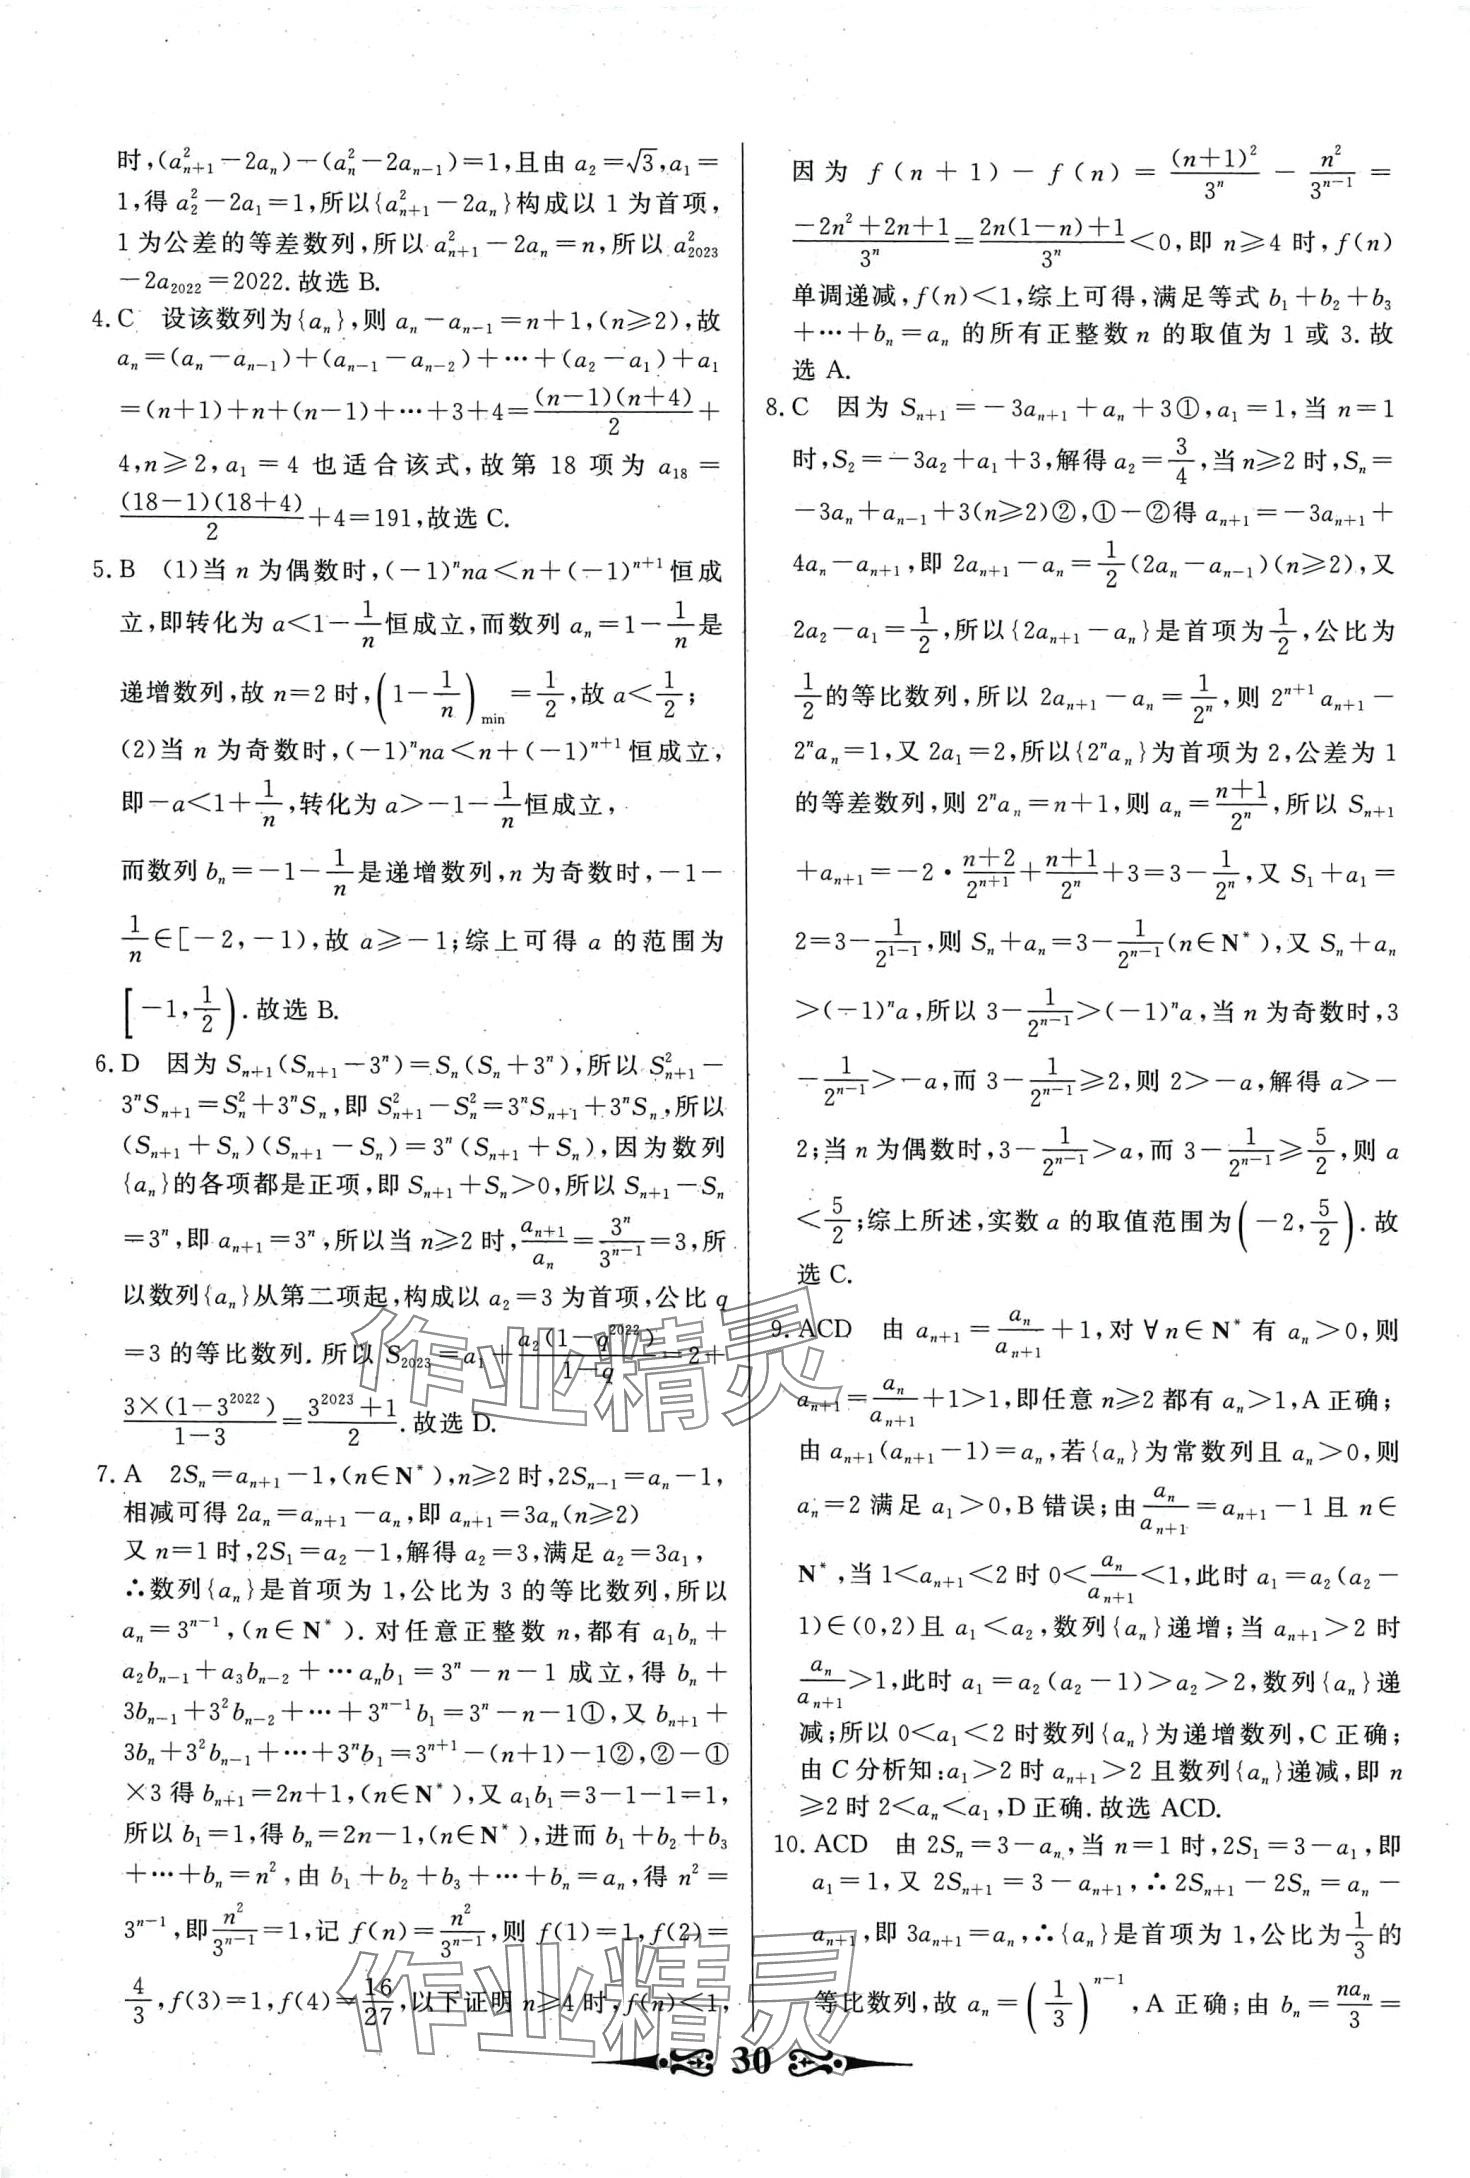 时,(a²ₙ₊₁－2aₙ)－(a²ₙ－2aₙ₋₁)＝1,且由 a₂＝√3,a₁＝
1,得 a₂²－2a₁＝1,所以{a²ₙ₊₁－2aₙ}构成以 1 为首项,
1 为公差的等差数列,所以 a²ₙ₊₁－2aₙ＝n,所以 a²₂₀₂₃
－2a₂₀₂₂＝2022.故选 B.
4. C 设该数列为{aₙ},则 aₙ－aₙ₋₁＝n＋1,(n≥2),故
aₙ＝(aₙ－aₙ₋₁)＋(aₙ₋₁－aₙ₋₂)＋⋯＋(a₂－a₁)＋a₁
＝(n＋1)＋n＋(n－1)＋⋯＋3＋4＝(n－1)(n＋4)/2＋
4,n≥2,a₁＝4 也适合该式,故第 18 项为 a₁₈＝
(18－1)(18＋4)/2＋4＝191,故选 C.
5. B (1)当 n 为偶数时,(－1)ⁿna＜n＋(－1)ⁿ⁺¹恒成
立,即转化为 a＜1－1/n恒成立,而数列 aₙ＝1－1/n是
递增数列,故 n＝2 时,(1－1/n)min＝1/2,故 a＜1/2;
(2)当 n 为奇数时,(－1)ⁿna＜n＋(－1)ⁿ⁺¹恒成立,
即－a＜1＋1/n,转化为 a＞－1－1/n恒成立,
而数列 bₙ＝－1－1/n是递增数列,n 为奇数时,－1－
1/n∈[－2,－1),故 a≥－1;综上可得 a 的范围为
[－1,1/2).故选 B.
6. D 因为 Sₙ₊₁(Sₙ₊₁－3ⁿ)＝Sₙ(Sₙ＋3ⁿ),所以 S²ₙ₊₁－
3ⁿSₙ₊₁＝S²ₙ＋3ⁿSₙ,即 S²ₙ₊₁－S²ₙ＝3ⁿSₙ₊₁＋3ⁿSₙ,所以
(Sₙ₊₁＋Sₙ)(Sₙ₊₁－Sₙ)＝3ⁿ(Sₙ₊₁＋Sₙ),因为数列
{aₙ}的各项都是正项,即 Sₙ₊₁＋Sₙ＞0,所以 Sₙ₊₁－Sₙ
＝3ⁿ,即 aₙ₊₁＝3ⁿ,所以当 n≥2 时,aₙ₊₁/aₙ＝3ⁿ/3ⁿ⁻¹＝3,所
以数列{aₙ}从第二项起,构成以 a₂＝3 为首项,公比 q
＝3 的等比数列.所以 S₂₀₂₃＝a₁＋a₂(1－q²⁰²²)/(1－q)＝2＋
3×(1－3²⁰²²)/(1－3)＝(3²⁰²³＋1)/2.故选 D.
7. A 2Sₙ＝aₙ₊₁－1,(n∈N*),n≥2 时,2Sₙ₋₁＝aₙ－1,
相减可得 2aₙ＝aₙ₊₁－aₙ,即 aₙ₊₁＝3aₙ(n≥2)
又 n＝1 时,2S₁＝a₂－1,解得 a₂＝3,满足 a₂＝3a₁,
∴数列{aₙ}是首项为 1,公比为 3 的等比数列,所以
aₙ＝3ⁿ⁻¹,(n∈N*).对任意正整数 n,都有 a₁bₙ＋
a₂bₙ₋₁＋a₃bₙ₋₂＋⋯aₙb₁＝3ⁿ－n－1 成立,得 bₙ＋
3bₙ₋₁＋3²bₙ₋₂＋⋯＋3ⁿ⁻¹b₁＝3ⁿ－n－1①,又 bₙ₊₁＋
3bₙ＋3²bₙ₋₁＋⋯＋3ⁿb₁＝3ⁿ⁺¹－(n＋1)－1②,②－①
×3 得 bₙ₊₁＝2n＋1,(n∈N*),又 a₁b₁＝3－1－1＝1,
所以 b₁＝1,得 bₙ＝2n－1,(n∈N*),进而 b₁＋b₂＋b₃
＋⋯＋bₙ＝n²,由 b₁＋b₂＋b₃＋⋯＋bₙ＝aₙ,得 n²＝
3ⁿ⁻¹,即n²/3ⁿ⁻¹＝1,记 f(n)＝n²/3ⁿ⁻¹,则 f(1)＝1,f(2)＝
4/3,f(3)＝1,f(4)＝16/27,以下证明 n≥4 时,f(n)＜1,
因为 f(n＋1)－f(n)＝(n＋1)²/3ⁿ－n²/3ⁿ⁻¹＝
(－2n²＋2n＋1)/3ⁿ＝(2n(1－n)＋1)/3ⁿ＜0,即 n≥4 时,f(n)
单调递减,f(n)＜1,综上可得,满足等式 b₁＋b₂＋b₃
＋⋯＋bₙ＝aₙ 的所有正整数 n 的取值为 1 或 3.故
选 A.
8. C 因为 Sₙ₊₁＝－3aₙ₊₁＋aₙ＋3①,a₁＝1,当 n＝1
时,S₂＝－3a₂＋a₁＋3,解得 a₂＝3/4,当 n≥2 时,Sₙ＝
－3aₙ＋aₙ₋₁＋3(n≥2)②,①－②得 aₙ₊₁＝－3aₙ₊₁＋
4aₙ－aₙ₊₁,即 2aₙ₊₁－aₙ＝1/2(2aₙ－aₙ₋₁)(n≥2),又
2a₂－a₁＝1/2,所以{2aₙ₊₁－aₙ}是首项为1/2,公比为
1/2的等比数列,所以 2aₙ₊₁－aₙ＝1/2ⁿ,则 2ⁿ⁺¹aₙ₊₁－
2ⁿaₙ＝1,又 2a₁＝2,所以{2ⁿaₙ}为首项为 2,公差为 1
的等差数列,则 2ⁿaₙ＝n＋1,则 aₙ＝(n＋1)/2ⁿ,所以 Sₙ₊₁
＋aₙ₊₁＝－2·(n＋2)/2ⁿ⁺¹＋(n＋1)/2ⁿ＋3＝3－1/2ⁿ,又 S₁＋a₁＝
2＝3－1/2¹⁻¹,则 Sₙ＋aₙ＝3－1/2ⁿ⁻¹(n∈N*),又 Sₙ＋aₙ
＞(－1)ⁿa,所以 3－1/2ⁿ⁻¹＞(－1)ⁿa,当 n 为奇数时,3
－1/2ⁿ⁻¹＞－a,而 3－1/2ⁿ⁻¹≥2,则 2＞－a,解得 a＞－
2;当 n 为偶数时,3－1/2ⁿ⁻¹＞a,而 3－1/2ⁿ⁻¹≥5/2,则 a
＜5/2;综上所述,实数 a 的取值范围为(－2,5/2).故
选 C.
9. ACD 由 aₙ₊₁＝aₙ/aₙ₊₁＋1,对∀n∈N*有 aₙ＞0,则
aₙ₊₁＝aₙ/aₙ₊₁＋1＞1,即任意 n≥2 都有 aₙ＞1,A 正确;
由 aₙ₊₁(aₙ₊₁－1)＝aₙ,若{aₙ}为常数列且 aₙ＞0,则
aₙ＝2 满足 a₁＞0,B 错误;由aₙ/aₙ₊₁＝aₙ₊₁－1 且 n∈
N*,当 1＜aₙ₊₁＜2 时 0＜aₙ/aₙ₊₁＜1,此时 a₁＝a₂(a₂－
1)∈(0,2)且 a₁＜a₂,数列{aₙ}递增;当 aₙ₊₁＞2 时
aₙ/aₙ₊₁＞1,此时 a₁＝a₂(a₂－1)＞a₂＞2,数列{aₙ}递
减;所以 0＜a₁＜2 时数列{aₙ}为递增数列,C 正确;
由 C 分析知:a₁＞2 时 aₙ₊₁＞2 且数列{aₙ}递减,即 n
≥2 时 2＜aₙ＜a₁,D 正确.故选 ACD.
10. ACD 由 2Sₙ＝3－aₙ,当 n＝1 时,2S₁＝3－a₁,即
a₁＝1,又 2Sₙ₊₁＝3－aₙ₊₁,∴2Sₙ₊₁－2Sₙ＝aₙ－
aₙ₊₁,即 3aₙ₊₁＝aₙ,∴{aₙ}是首项为 1,公比为1/3的
等比数列,故 aₙ＝(1/3)ⁿ⁻¹,A 正确;由 bₙ＝naₙ/3＝
作业精灵
作业精灵
30